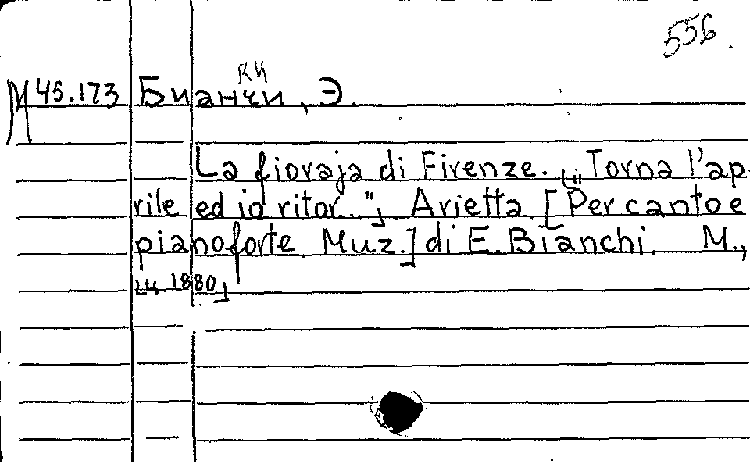 556.
М 45.173 Бианчи, Э.
ки
La fioraja di Firenze. [„Torna l'ap-
rile ed io ritor..."] Arietta [Per canto e
pianoforte. Muz.] di E. Bianchi. M.,
[ц. 1880]